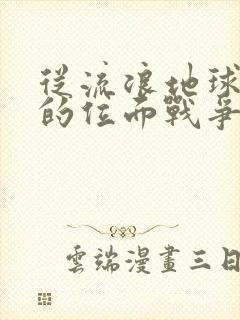 從流浪地球
的位面戰爭
雲端漫畫三日